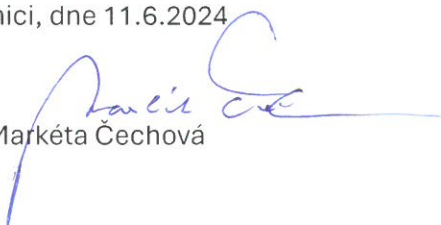 nici, dne 11.6.2024
Markéta Čechová